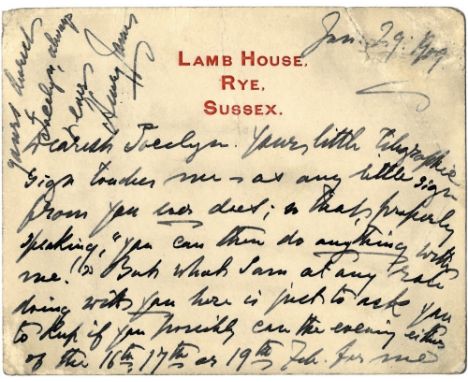 LAMB HOUSE,
RYE,
SUSSEX.
Jan. 29. 1909.
Dearest Jocelyn. Your little telegraphic
sign touches me — as any little sign
from you ever does; so that, properly
speaking, "you can then do anything with
me." But what I am at any rate
doing with you here is just to ask you
to keep if you possibly can the evening either
of the 16th, 17th or 19th Feb. for me
yours dearest
Jocelyn, always
& ever
Henry James